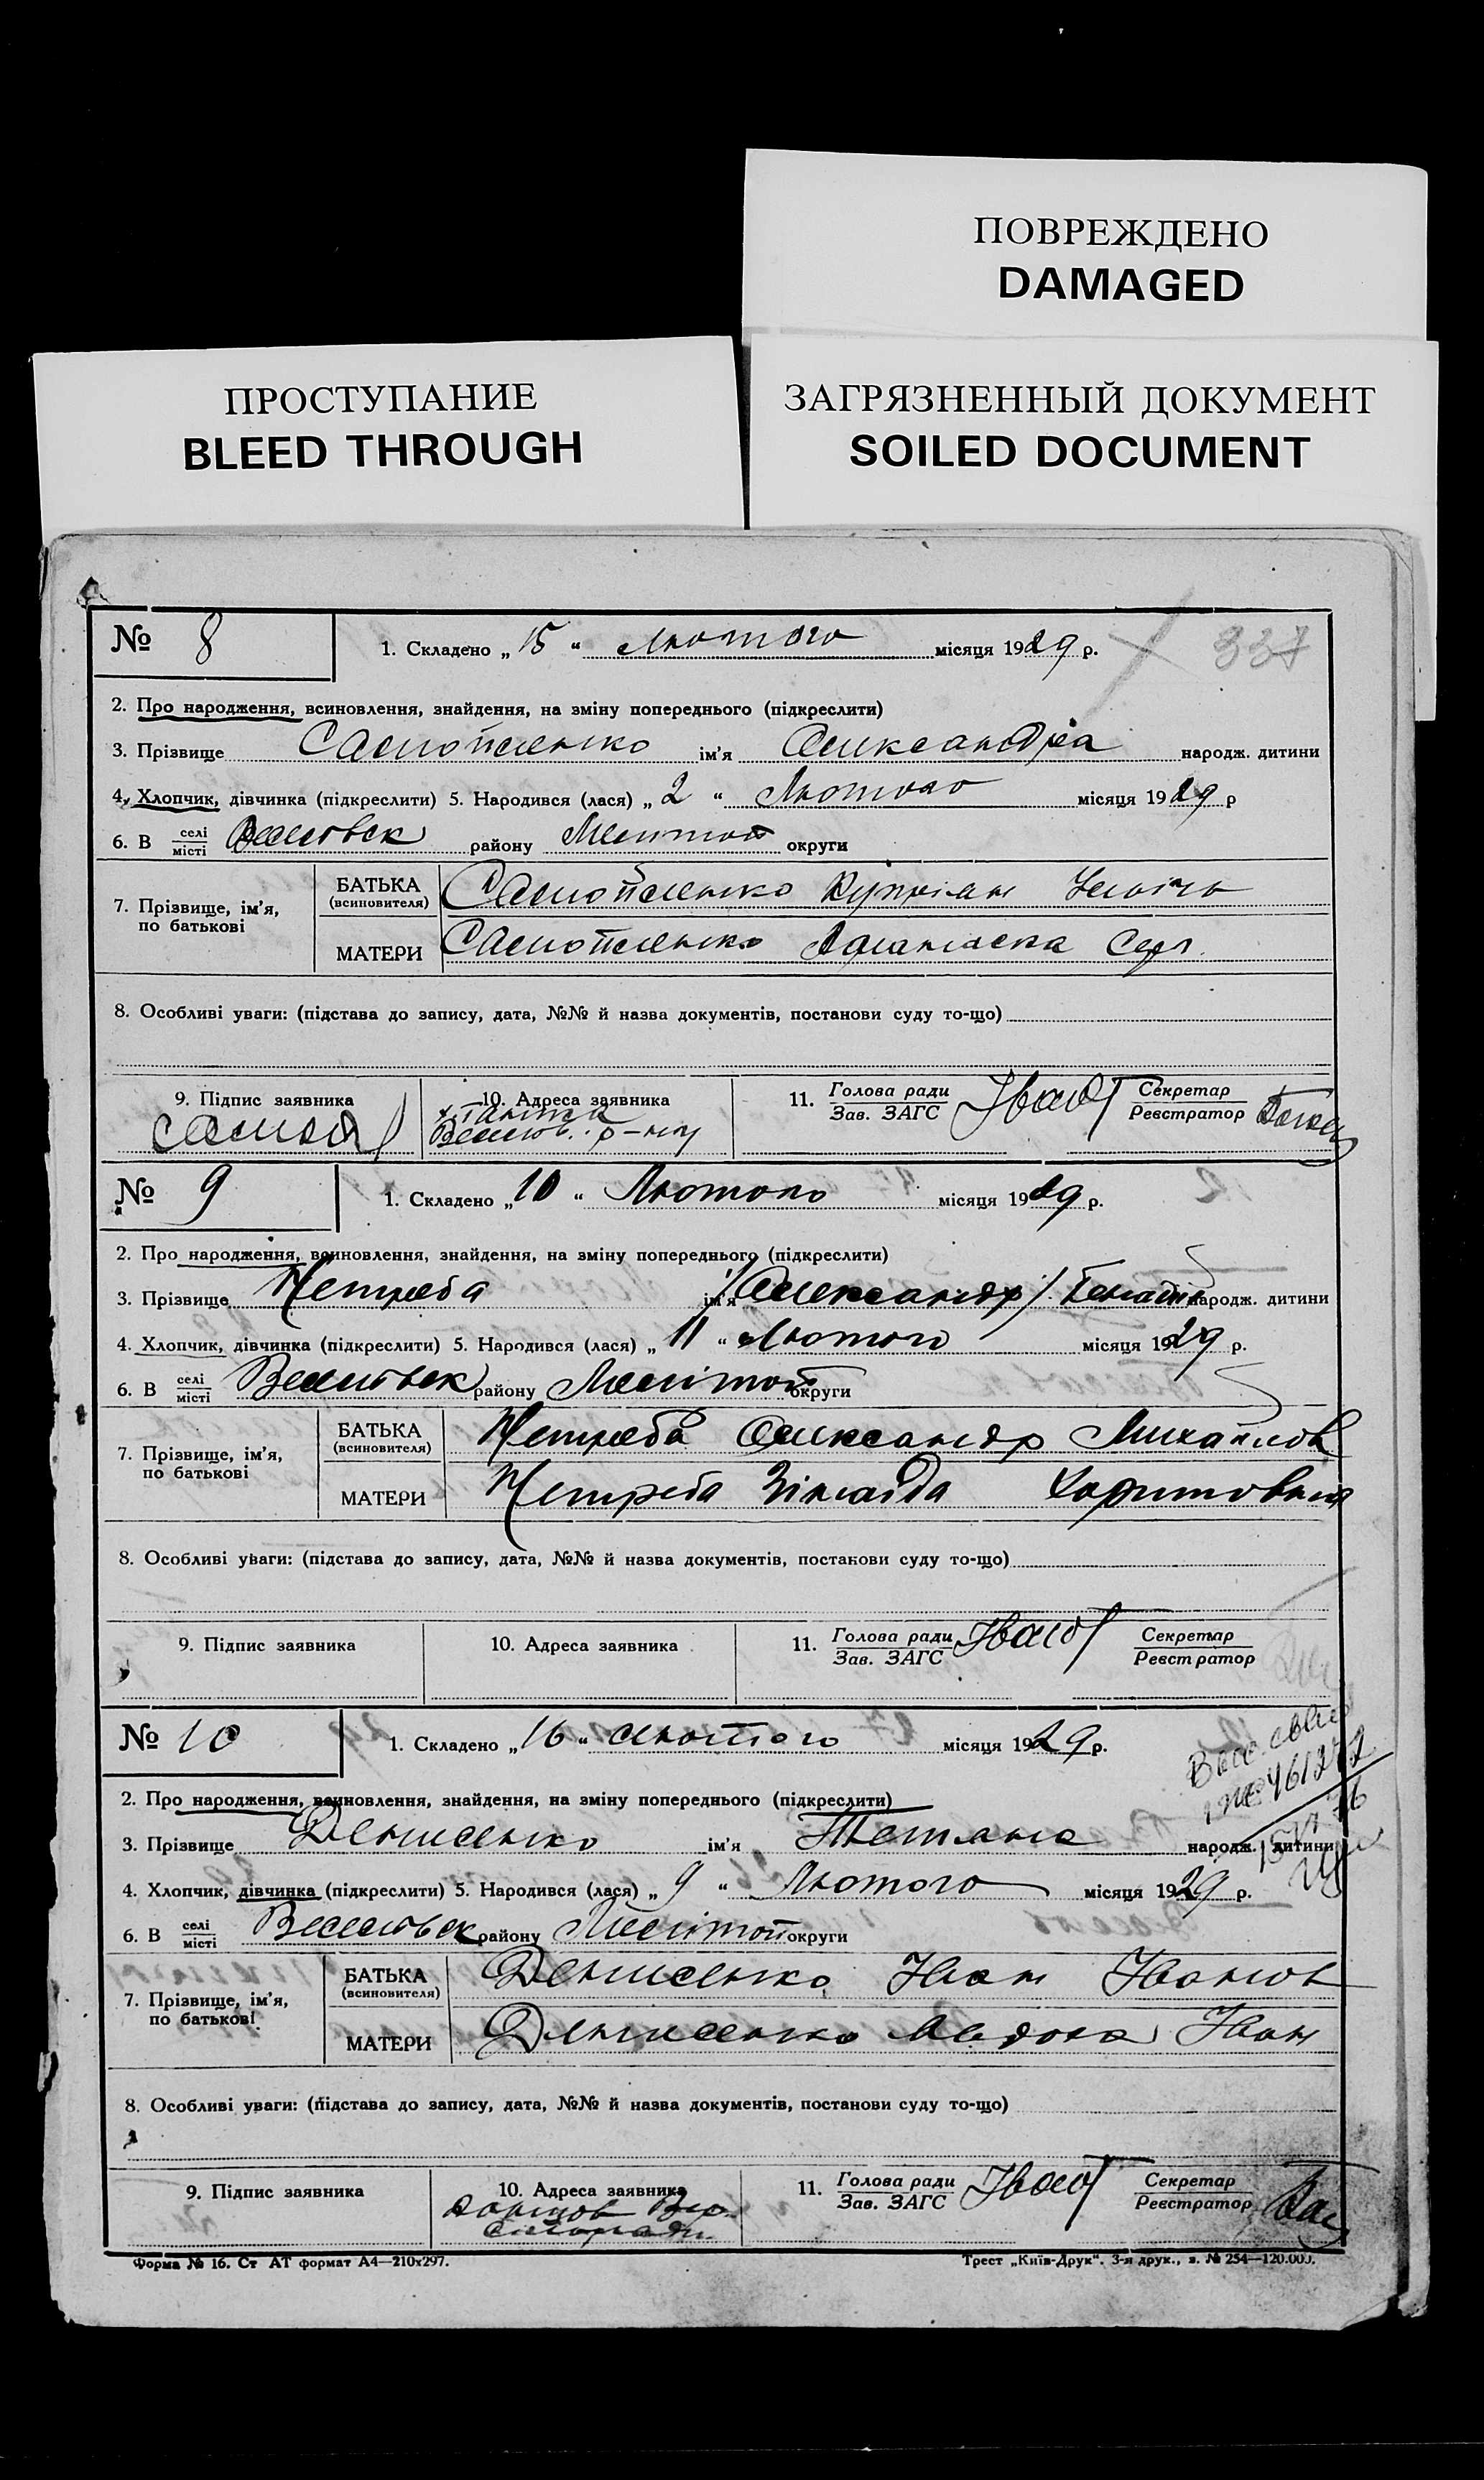 ПОВРЕЖДЕНО
DAMAGED
ПРОСТУПАНИЕ
BLEED THROUGH
ЗАГРЯЗНЕННЫЙ ДОКУМЕНТ
SOILED DOCUMENT
№ 8
1. Складено „ 15 “ Лютого місяця 1929 р.
337
2. Про народження, всиновлення, знайдення, на зміну попереднього (підкреслити)
3. Прізвище ім'я Олександра народж. дитини
4. Хлопчик, дівчинка (підкреслити) 5. Народився (лася) „ 2 “ Лютого місяця 1929 р
6. В селі місті району Меліто округи
7. Прізвище, ім'я, по батькові
БАТЬКА (всиновителя)
МАТЕРИ
8. Особливі уваги: (підстава до запису, дата, №№ й назва документів, постанови суду то-що)
9. Підпис заявника
10. Адреса заявника
11. Голова ради Зав. ЗАГС
Секретар Реєстратор
№ 9
1. Складено „ 10 “ Лютого місяця 1929 р.
2. Про народження, всиновлення, знайдення, на зміну попереднього (підкреслити)
3. Прізвище Непреба ім'я /Олександр/ Генадій народж. дитини
4. Хлопчик, дівчинка (підкреслити) 5. Народився (лася) „ 11 “ Лютого місяця 1929 р.
6. В селі місті Веселовск району Мелітоп округи
7. Прізвище, ім'я, по батькові
БАТЬКА (всиновителя) Непреба Олександр Михайлов
МАТЕРИ Непреба Зінаіда Харитовына
8. Особливі уваги: (підстава до запису, дата, №№ й назва документів, постанови суду то-що)
9. Підпис заявника
10. Адреса заявника
11. Голова ради Зав. ЗАГС
Секретар Реєстратор
№ 10
1. Складено „ 16 “ Лютого місяця 1929 р.
2. Про народження, всиновлення, знайдення, на зміну попереднього (підкреслити)
3. Прізвище Денисенко ім'я Тетяна народж. дитини
4. Хлопчик, дівчинка (підкреслити) 5. Народився (лася) „ 9 “ Лютого місяця 1929 р.
6. В селі місті Веселовск району Мелітоп округи
7. Прізвище, ім'я, по батькові
БАТЬКА (всиновителя) Денисенко Иван Иванов
МАТЕРИ Денисенко Иван
8. Особливі уваги: (підстава до запису, дата, №№ й назва документів, постанови суду то-що)
9. Підпис заявника
10. Адреса заявника
11. Голова ради Зав. ЗАГС
Секретар Реєстратор
Форма № 16. Ст АТ формат А4—210x297.
Трест „Київ-Друк“. 3-я друк., з. № 254—120.000.